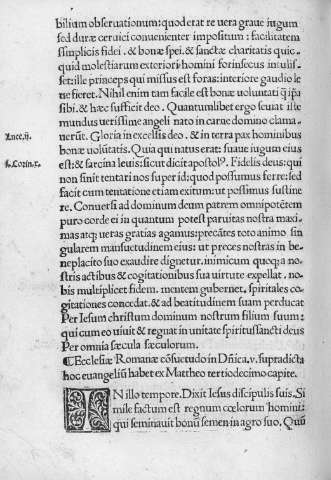 bilium obseruationum: quod erat re uera graue iugum
sed duræ ceruici conuenienter impositum: facilitatem
simplicis fidei. & bonæ spei. & sanctæ charitatis quic
quid molestiarum exteriori homini forinsecus intulis
set: ille princeps qui missus est foras: interiore gaudio le
ue fieret. Nihil enim tam facile est bonæ uoluntati q̃ ipa
sibi. & hæc sufficit deo. Quantumlibet ergo seuiat iste
mundus uerissime angeli nato in carne domino clama
Luce.ii.
uerũt. Gloria in excelsis deo. & in terra pax hominibus
bonæ uolũtatis. Quia qui natus erat: suaue iugum eius
est: & sarcina leuis: sicut dicit apostolꝰ. Fidelis deus: qui
i. Corin.x.
non sinit tentari nos super id: quod possumus ferre: sed
facit cum tentatione etiam exitum: ut possimus sustine
re. Conuersi ad dominum deum patrem omnipotẽtem
puro corde ei in quantum potest paruitas nostra maxi,
mas atqꝫ ueras gratias agamus: precãtes toto animo sin
gularem mansuetudinem eius: ut preces nostras in be,
neplacito suo exaudire dignetur. inimicum quoqꝫ a no
stris actibus & cogitationibus sua uirtute expellat. no,
bis multiplicet fidem. mentem gubernet. spiritales co
gitationes concedat. & ad beatitudinem suam perducat
Per Iesum christum dominum nostrum filium suum:
qui cum eo uiuit & regnat in unitate spiritussancti deus
Per omnia sæcula sæculorum.
¶ Ecclesiæ Romanæ cõsuetudo in Dñica.v. supradicta
hoc euangeliũ habet ex Mattheo tertiodecimo capite.
IN illo tempore. Dixit Iesus discipulis suis. Si
mile factum est regnum cœlorum homini:
qui seminauit bonũ semen in agro suo. Quũ